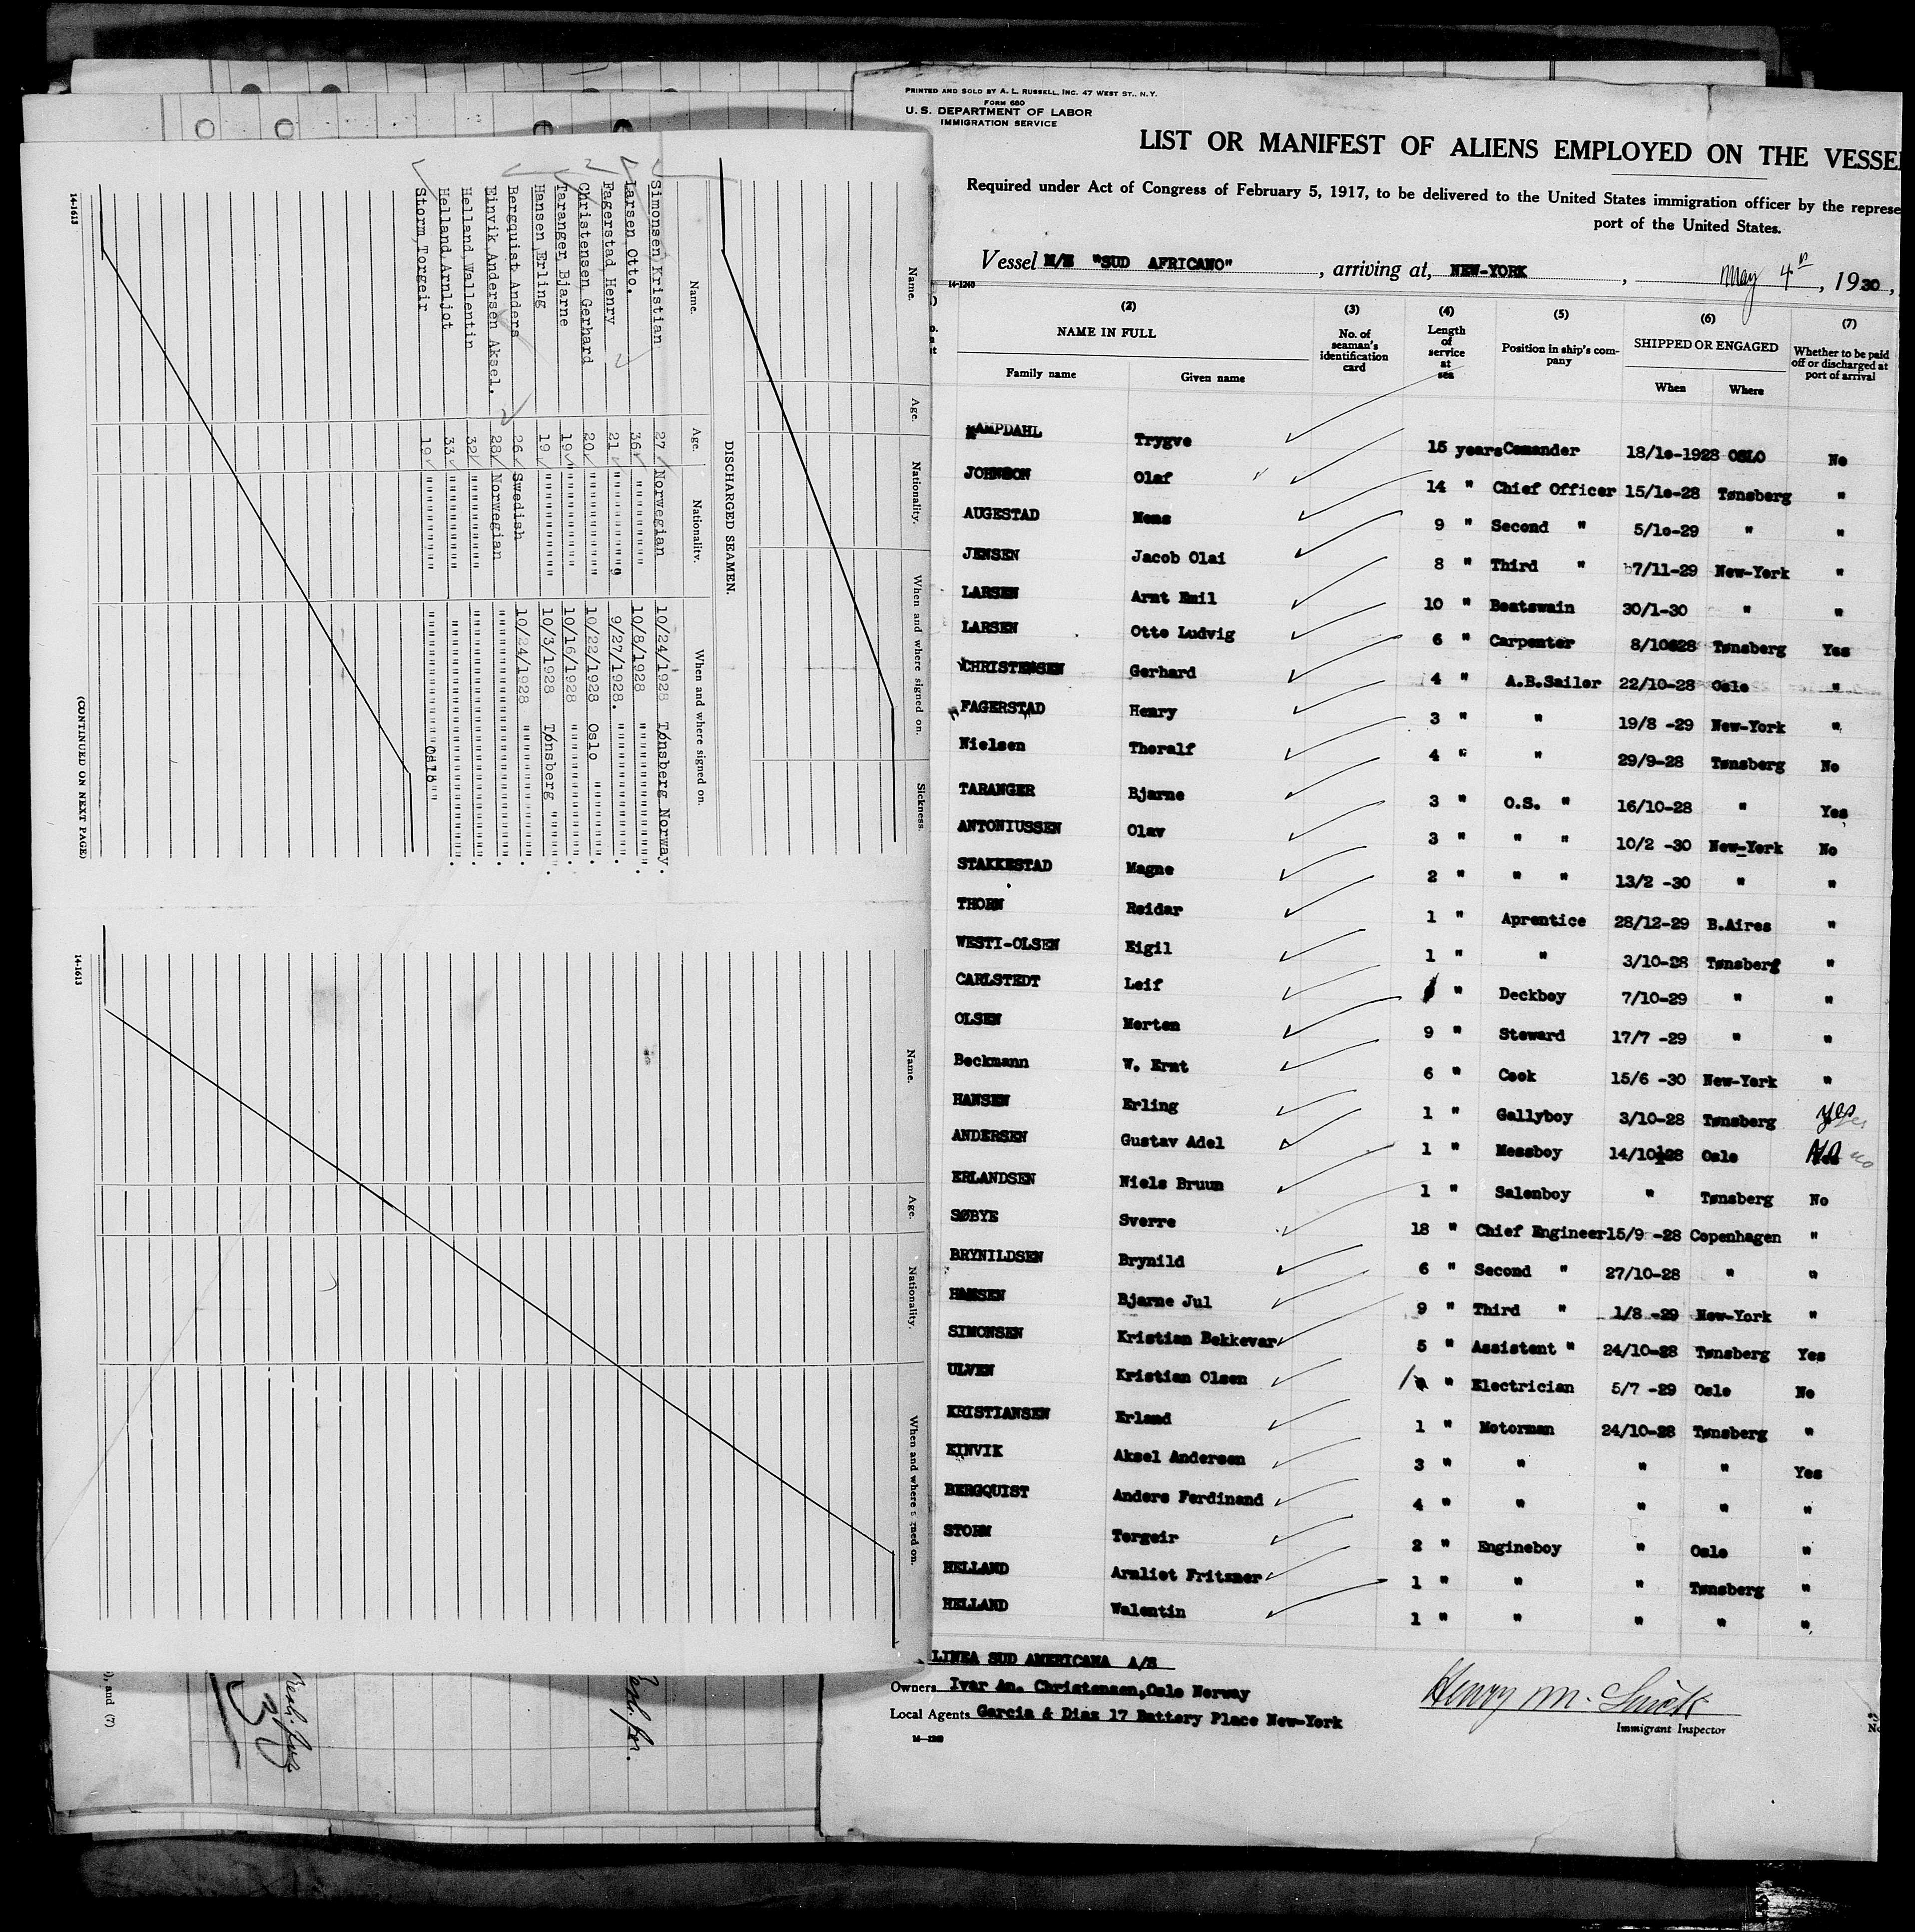 PRINTED AND SOLD BY A. L. RUSSELL, INC. 47 WEST ST., N.Y.
FORM 680
U. S. DEPARTMENT OF LABOR
IMMIGRATION SERVICE
LIST OR MANIFEST OF ALIENS EMPLOYED ON THE VESSE
Required under Act of Congress of February 5, 1917, to be delivered to the United States immigration officer by the represe
port of the United States.
Vessel "SUD AFRICANO" , arriving at, NEW-YORK , May 4th , 1930 ,
14-1240
(2) (3) (4) (5) (6) (7)
NAME IN FULL No. of seaman's identification card Length of service at sea Position in ship's company SHIPPED OR ENGAGED Whether to be paid off or discharged at port of arrival
Family name Given name When Where
Trygve 15 years Comander 18/10-1928 OSLO No
JOHNSON Olaf 14 " Chief Officer 15/10-28 Tønsberg "
AUGESTAD Mons 9 " Second " 5/10-29 " "
JENSEN Jacob Olai 8 " Third " 7/11-29 New-York "
LARSEN Arnt Emil 10 " Boatswain 30/1-30 " "
LARSEN Otto Ludvig 6 " Carpenter 8/10-28 Tønsberg Yes
CHRISTENSEN Gerhard 4 " A.B.Sailor 22/10-28 Oslo "
FAGERSTAD Henry 3 " " 19/8 -29 New-York "
Nielsen Thoralf 4 " " 29/9-28 Tønsberg No
TARANGER Bjarne 3 " O.S. " 16/10-28 " Yes
ANTONIUSSEN Olav 3 " " " 10/2 -30 New-York No
STAKKESTAD Magne 2 " " " 13/2 -30 " "
THORN Reidar 1 " Aprentice 28/12-29 B.Aires "
WESTI-OLSEN Eigil 1 " " 3/10-28 Tønsberg "
CARLSTEDT Leif " Deckboy 7/10-29 " "
OLSEN Morten 9 " Steward 17/7 -29 " "
Beckmann W. Ernt 6 " Cook 15/6 -30 New-York "
HANSEN Erling 1 " Gallyboy 3/10-28 Tønsberg yes
ANDERSEN Gustav Adel 1 " Messboy 14/10-28 Oslo No
ERLANDSEN Niels Bruun 1 " Salonboy " Tønsberg No
SØBYE Sverre 18 " Chief Engineer 15/9 -28 Copenhagen "
BRYNILDSEN Brynild 6 " Second " 27/10-28 " "
HANSEN Bjarne Jul 9 " Third " 1/8 -29 New-York "
SIMONSEN Kristian Bekkevar 5 " Assistent " 24/10-28 Tønsberg Yes
ULVEN Kristian Olsen " Electrician 5/7 -29 Oslo No
KRISTIANSEN Erland 1 " Motorman 24/10-28 Tønsberg "
EINVIK Aksel Andersen 3 " " " " Yes
BERGQUIST Anders Ferdinand 4 " " " " "
STORM Torgeir 2 " Engineboy " Oslo "
HELLAND Arnliot Fritzner 1 " " " Tønsberg "
HELLAND Walentin 1 " " " " "
LINEA SUD AMERICANA A/S
Owners Ivar An. Christensen, Oslo Norway
Local Agents Garcia & Diaz 17 Battery Place New-York
Henry M.
Immigrant Inspector
Name. Age. Nationality. When and where signed on. Sickness.
DISCHARGED SEAMEN.
Name. Age. Nationality. When and where signed on.
Simonsen Kristian 27 Norwegian 10/24/1928 Tønsberg Norway.
Larsen Otto. 36 """""""" 10/8/1928 """""""""""""""
Fagerstad Henry 21 """""""" 9/27/1928. """""""""""""""
Christensen Gerhard 20 """""""" 10/22/1928 Oslo """"""""
Taranger Bjarne 19 """""""" 10/16/1928 """""""""""""""
Hansen Erling 19 """""""" 10/3/1928 Tønsberg """"""
Bergquist Anders 26 Swedish 10/24/1928 """""""""""""""
Einvik Andersen Aksel. 28 Norwegian """"""""""""""""""""""""
Helland, Wallentin 32 """""""" """"""""""""""""""""""""
Helland, Arnljot 33 """""""" """"""""""""""""""""""""
Storm, Torgeir 19 """""""" """""""""""""" Oslo """
14-1613
(CONTINUED ON NEXT PAGE)
Name. Age. Nationality. When and where signed on.
14-1613
, and (7)